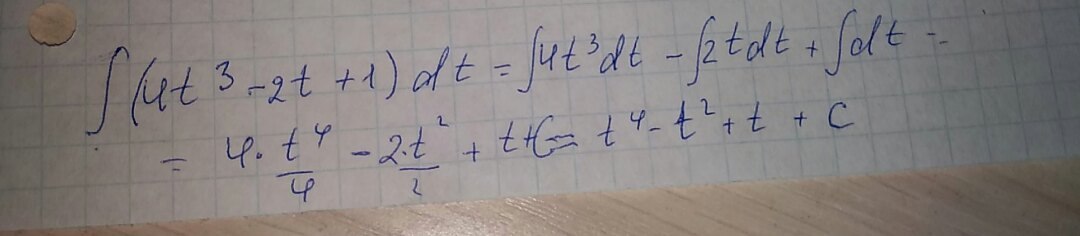 ∫(4t³ - 2t + 1) dt = ∫4t³dt - ∫2tdt + ∫dt =
= 4·t⁴/4 - 2·t²/2 + t + C = t⁴ - t² + t + C